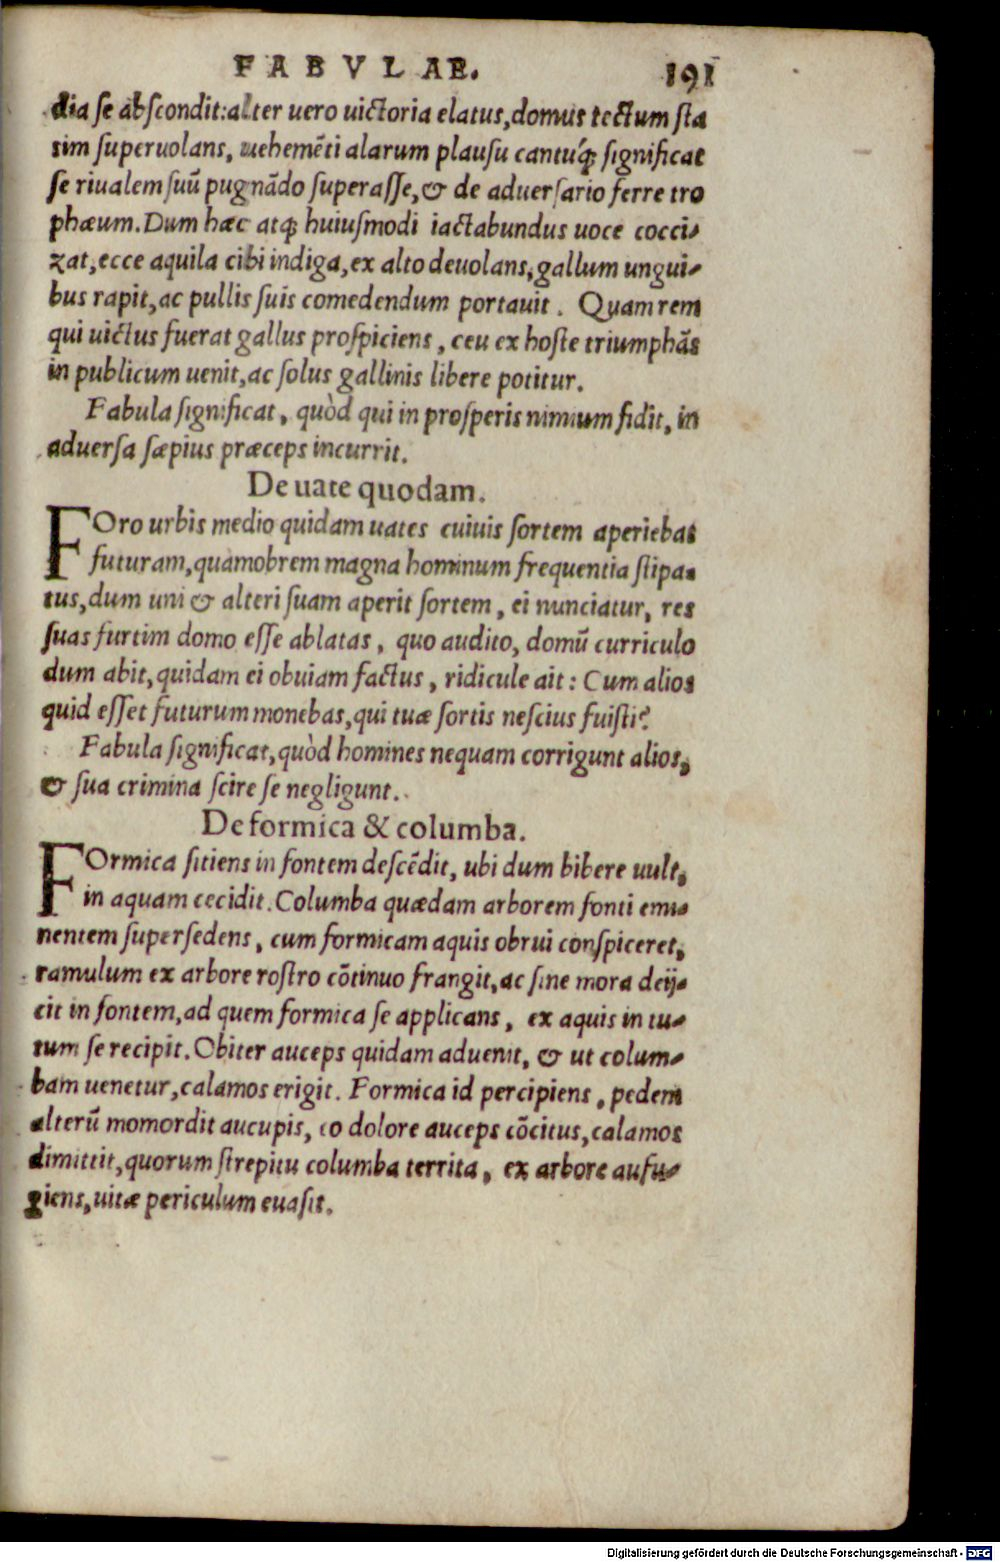 FABVLAE. 191
dia se abscondit:alter uero uictoria elatus,domus tectum sta
tim superuolans, uehemēti alarum plausu cantúq; significat
se riualem suū pugnādo superasse,& de aduersario ferre tro
phæum.Dum hæc atq; huiusmodi iactabundus uoce cocci-
zat,ecce aquila cibi indiga,ex alto deuolans,gallum ungui-
bus rapit,ac pullis suis comedendum portauit. Quam rem
qui uictus fuerat gallus prospiciens, ceu ex hoste triumphās
in publicum uenit,ac solus gallinis libere potitur.
Fabula significat, quòd qui in prosperis nimium fidit, in
aduersa sæpius præceps incurrit.
De uate quodam.
FOro urbis medio quidam uates cuiuis sortem aperiebat
futuram,quamobrem magna hominum frequentia stipa-
tus,dum uni & alteri suam aperit sortem, ei nunciatur, res
suas furtim domo esse ablatas, quo audito, domū curriculo
dum abit,quidam ei obuiam factus, ridicule ait: Cum alios
quid esset futurum monebas,qui tuæ sortis nescius fuisti?
Fabula significat,quòd homines nequam corrigunt alios,
& sua crimina scire se negligunt.
De formica & columba.
FOrmica sitiens in fontem descēdit, ubi dum bibere uult,
in aquam cecidit.Columba quædam arborem fonti emi-
nentem supersedens, cum formicam aquis obrui conspiceret,
ramulum ex arbore rostro cōtinuo frangit,ac sine mora deij-
cit in fontem,ad quem formica se applicans, ex aquis in tu-
tum se recipit.Obiter auceps quidam aduenit, & ut colum-
bam uenetur,calamos erigit. Formica id percipiens, pedem
alterū momordit aucupis, eo dolore auceps cōcitus,calamos
dimittit,quorum strepitu columba territa, ex arbore aufu-
giens,uitæ periculum euasit.
Digitalisierung gefördert durch die Deutsche Forschungsgemeinschaft - DFG